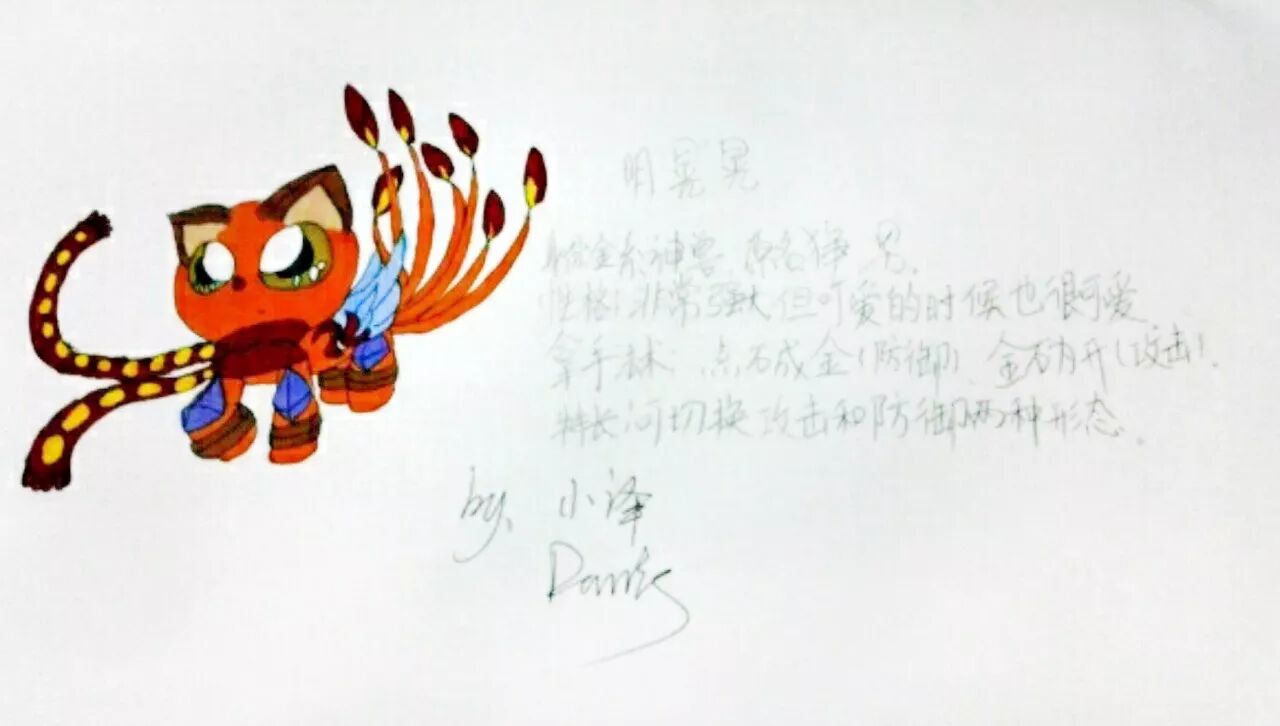 明晃晃
金系神兽 原名狰 男.
性格:非常强大但可爱的时候也很可爱
拿手术:点石成金(防御) 金石为开(攻击).
特长:可切换攻击和防御两种形态.
by. 小泽